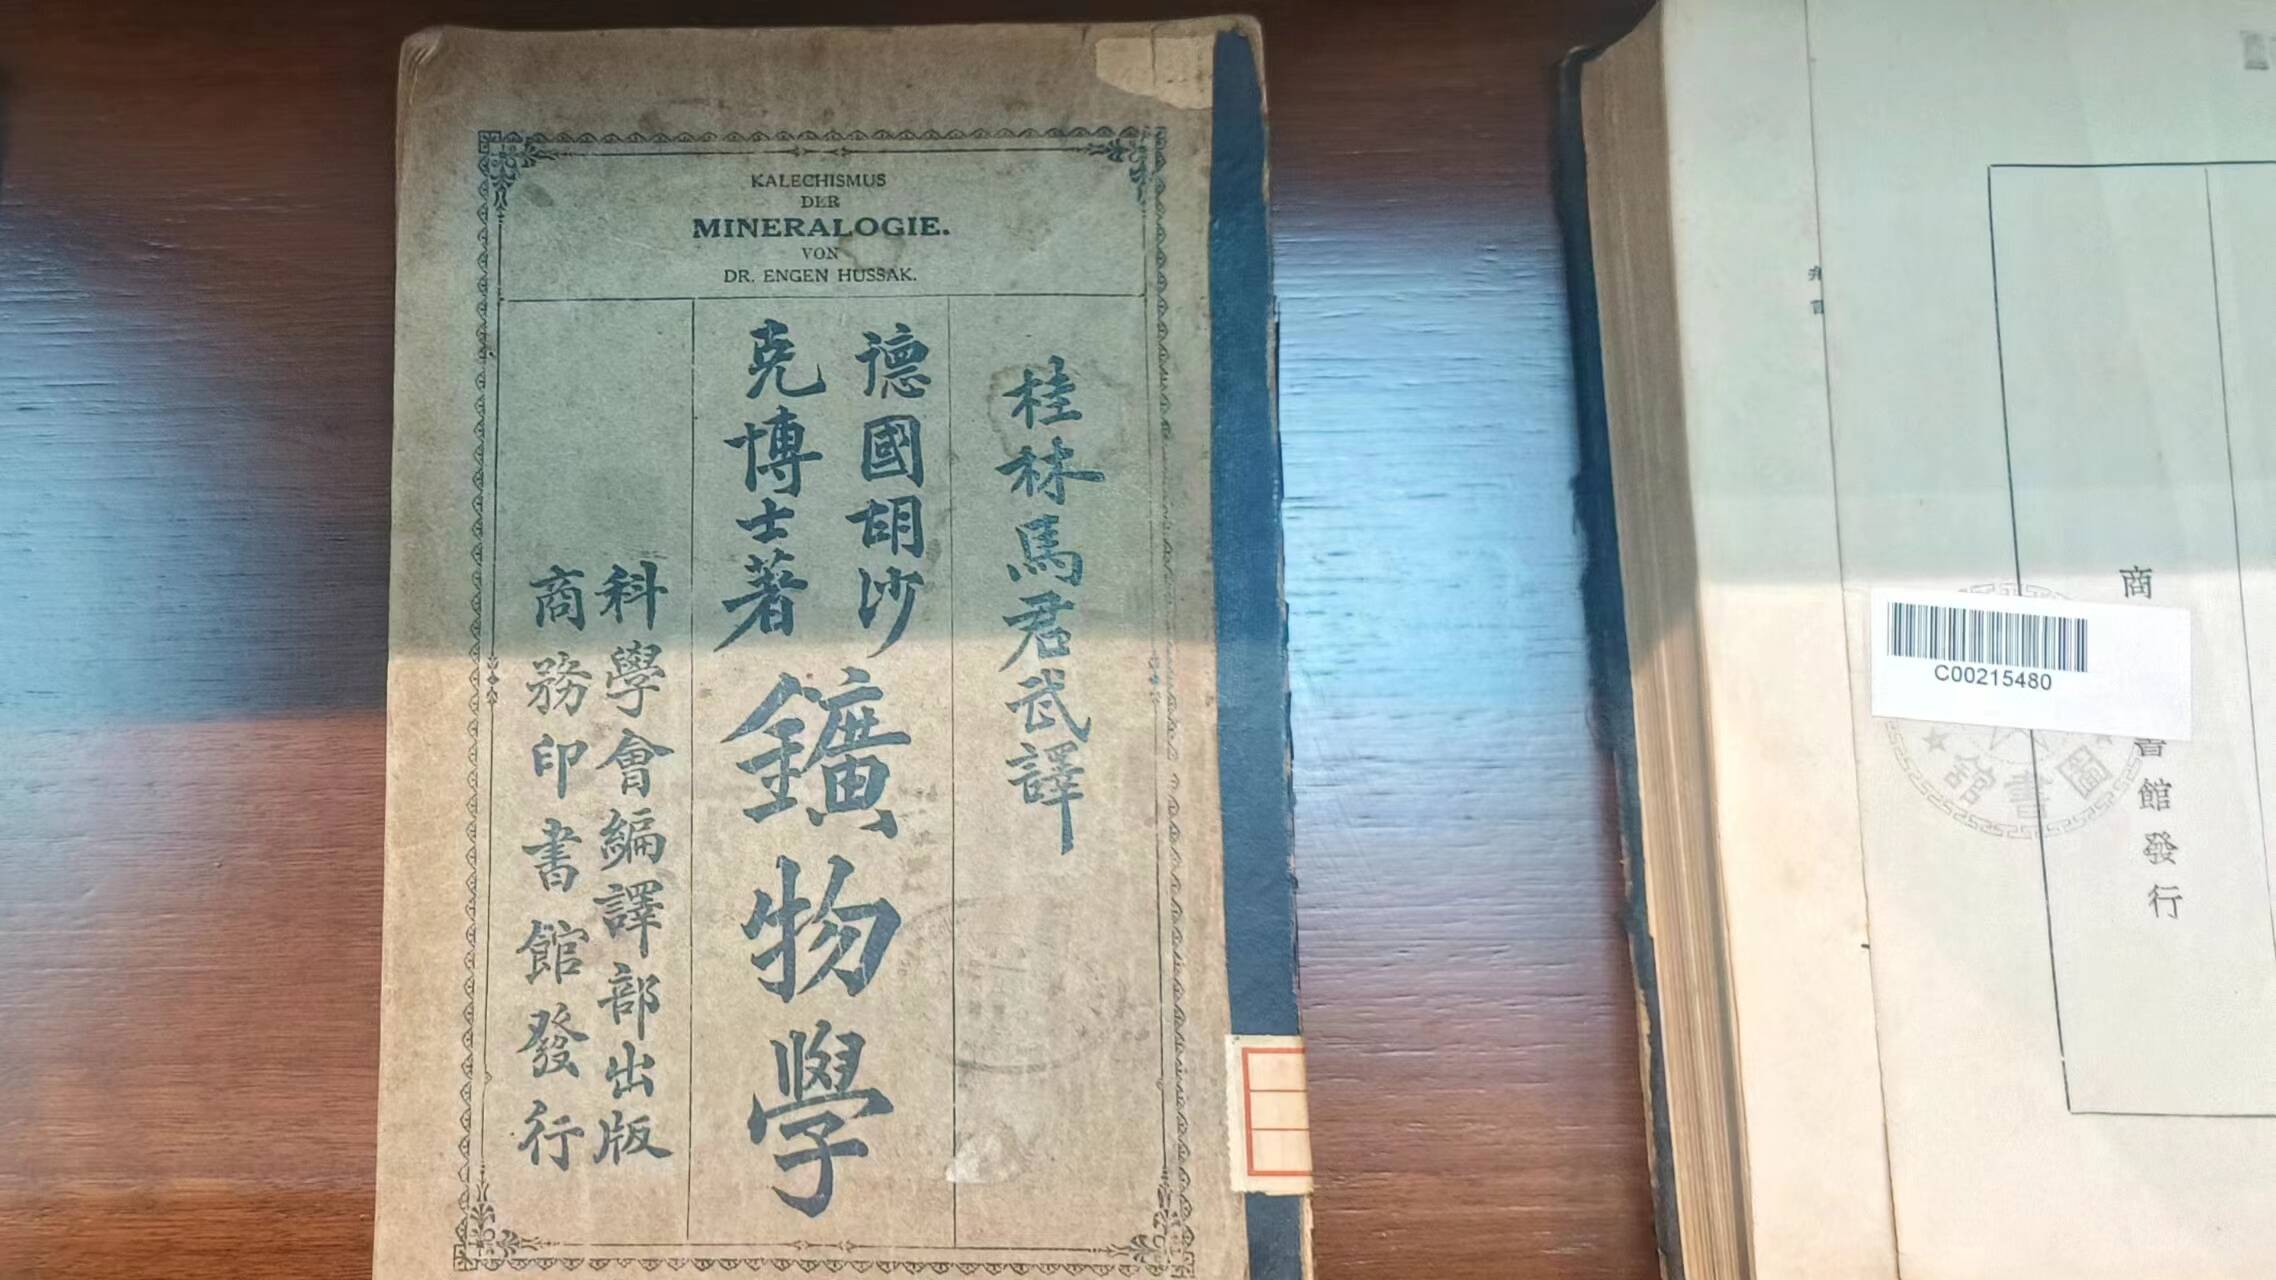 KALECHISMUS
DER
MINERALOGIE.
VON
DR. ENGEN HUSSAK.
桂林馬君武譯
德國胡沙
克博士著
鑛物學
科學會編譯部出版
商務印書館發行
C00215480
商
書館發行
圖書館